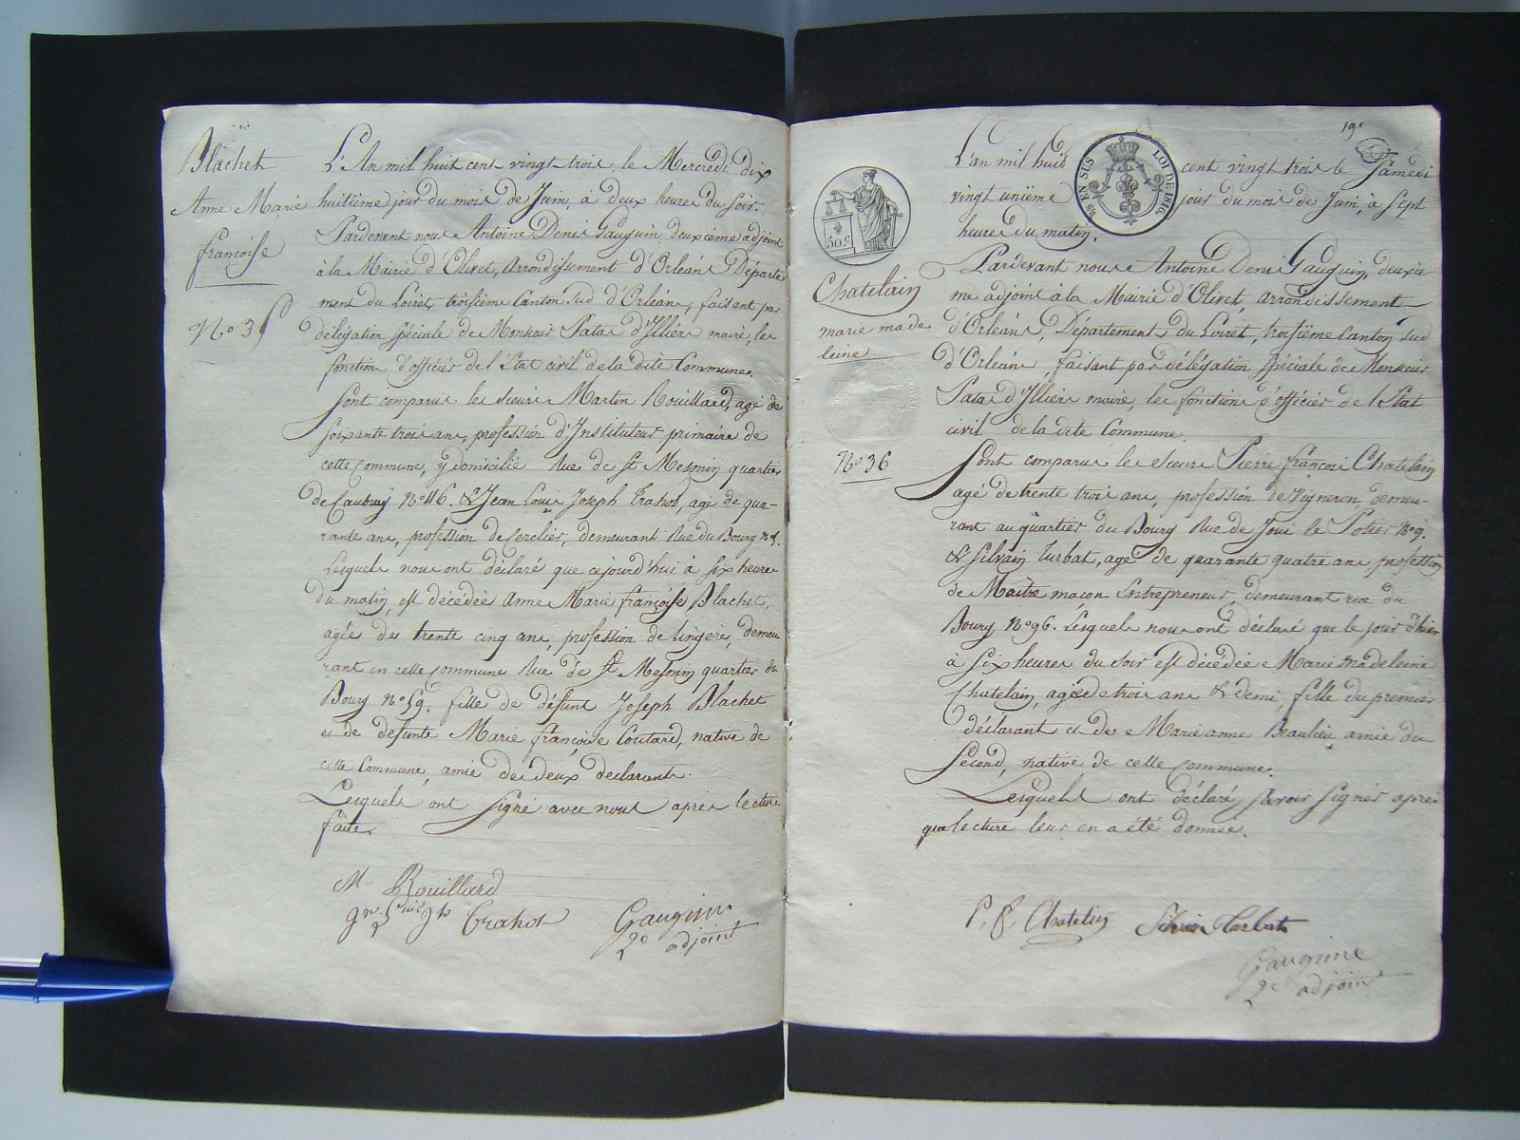 Blachet
Anne Marie
françoise
N.o 35
L'An mil huit cent vingt trois, le Mercredi dix
huitième jour du mois de Juin, à deux heures du soir.
Pardevant nous Antoine Denis Gauguin, deuxième adjoint
à la Mairie d'Olivet, arrondissement d'Orléans Départe
ment du Loiret, troisième Canton Sud d'Orléans, faisant par
délégation spéciale de Monsieur Patas d'Illiers maire, les
fonction d'officier de l'Etat civil de la dite Commune.
Sont comparus les sieurs Martin Rouillard, agé de
soixante trois ans, profession d'Instituteur primaire de
cette commune, y domicilié rue de St Mesmin quartier
de Caubray N.o 116. & Jean Louis Joseph Trahot, agé de qua-
rante ans, profession de Cerclier, demeurant rue du Bourg
Lesquels nous ont déclaré que cejourd'hui à six heures
du matin, est décédée Anne Marie françoise Blachet,
agée de trente cinq ans, profession de lingère, demeu
rant en cette commune rue de St Mesmin quartier du
Bourg N.o 59. fille de défunt Joseph Blachet
et de defunte Marie françoise Coutard, native de
cette Commune, amie des deux declarants.
Lesquels ont signé avec nous après lecture
faite.
M Rouillard
Trahot
Gauguin
2e adjoint
19e
50 c
EN SUS
LOI DE 1816.
Chatelain
marie made
leine
N.o 36
L'an mil huit cent vingt trois le Samedi
vingt unième jour du mois de Juin, à sept
heures du matin.
Pardevant nous Antoine Denis Gauguin, deuxiè
me adjoint à la Mairie d'Olivet arrondissement
d'Orléans, Département du Loiret, troisième Canton sud
d'Orléans, faisant par délégation spéciale de Monsieur
Patas d'Illiers maire, les fonctions d'officier de l'Etat
civil de la dite Commune.
Sont comparus les sieurs Pierre françois Chatelain
agé de trente trois ans, profession de Vigneron, demeu-
rant au quartier du Bourg rue de Joui le Potier N.o 9.
& Silvain Turbat, agé de quarante quatre ans profession
de Maître maçon Entrepreneur, demeurant rue du
Bourg N.o 96. Lesquels nous ont déclaré que le jour d'hier
à six heures du soir est décédée Marie madeleine
Chatelain, agée de trois ans & demi, fille du premier
déclarant et de Marie anne Beaulieu amie du
second, native de cette Commune.
Lesquels ont déclaré savoir signer après
que lecture leur en a été donnée.
P. f. Chatelin
Silvain Turbat
Gauguin
2e adjoint